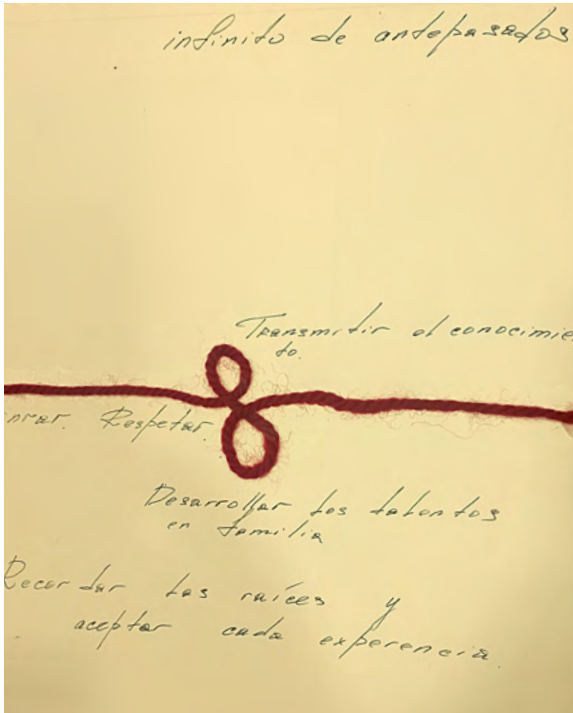 infinito de antepasados
Transmitir el conocimien
to.
nrar. Respetar.
Desarrollar los talentos
en familia
Recordar las raíces y
aceptar cada experencia.